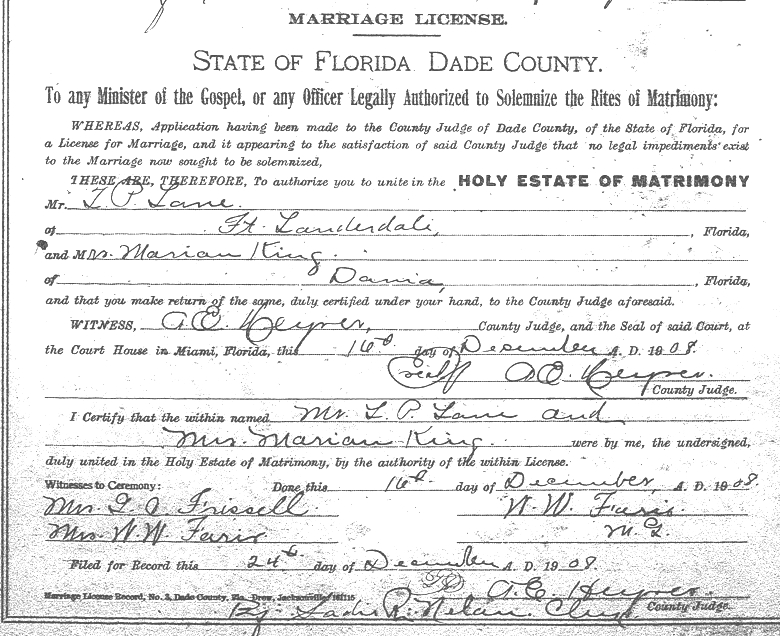 MARRIAGE LICENSE.
STATE OF FLORIDA DADE COUNTY.
To any Minister of the Gospel, or any Officer Legally Authorized to Solemnize the Rites of Matrimony:
WHEREAS, Application having been made to the County Judge of Dade County, of the State of Florida, for
a License for Marriage, and it appearing to the satisfaction of said County Judge that no legal impediments exist
to the Marriage now sought to be solemnized,
THESE ARE, THEREFORE, To authorize you to unite in the HOLY ESTATE OF MATRIMONY
Mr. L. P. Lane.
of Ft. Lauderdale, , Florida,
and Mrs. Marian King.
of Dania, , Florida,
and that you make return of the same, duly certified under your hand, to the County Judge aforesaid.
WITNESS, A. E. Heyser, County Judge, and the Seal of said Court, at
the Court House in Miami, Florida, this 16th day of December A. D. 1908.
Seal A. E. Heyser.
County Judge.
I Certify that the within named Mr. L. P. Lane and
Mrs. Marian King. were by me, the undersigned,
duly united in the Holy Estate of Matrimony, by the authority of the within License.
Witnesses to Ceremony: Done this 16th day of December, A. D. 1908.
Mrs. Frissell W. W. Faris.
Mrs. W. W. Faris M. G.
Filed for Record this 24th day of December A. D. 1908.
A. E. Heyser.
Marriage License Record, No. 3, Dade County, Fla. Drew, Jacksonville County Judge.
By: R. Nelan. Clerk